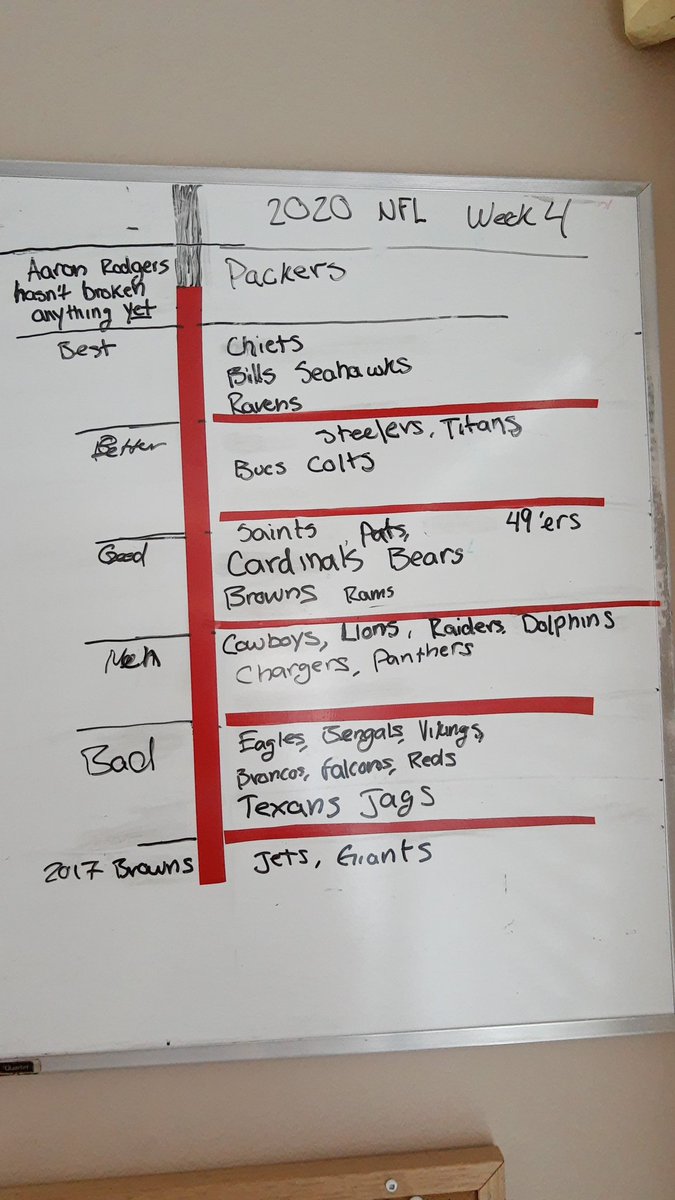 2020 NFL Week 4
Aaron Rodgers
hasn't broken
anything yet
Packers
Best
Chiefs
Bills Seahawks
Ravens
Better
Steelers, Titans
Bucs Colts
Good
Saints, Pats, 49'ers
Cardinals Bears
Browns Rams
Meh
Cowboys, Lions, Raiders, Dolphins
Chargers, Panthers
Bad
Eagles, Bengals, Vikings,
Broncos, Falcons, Reds
Texans Jags
2017 Browns
Jets, Giants
Quartet